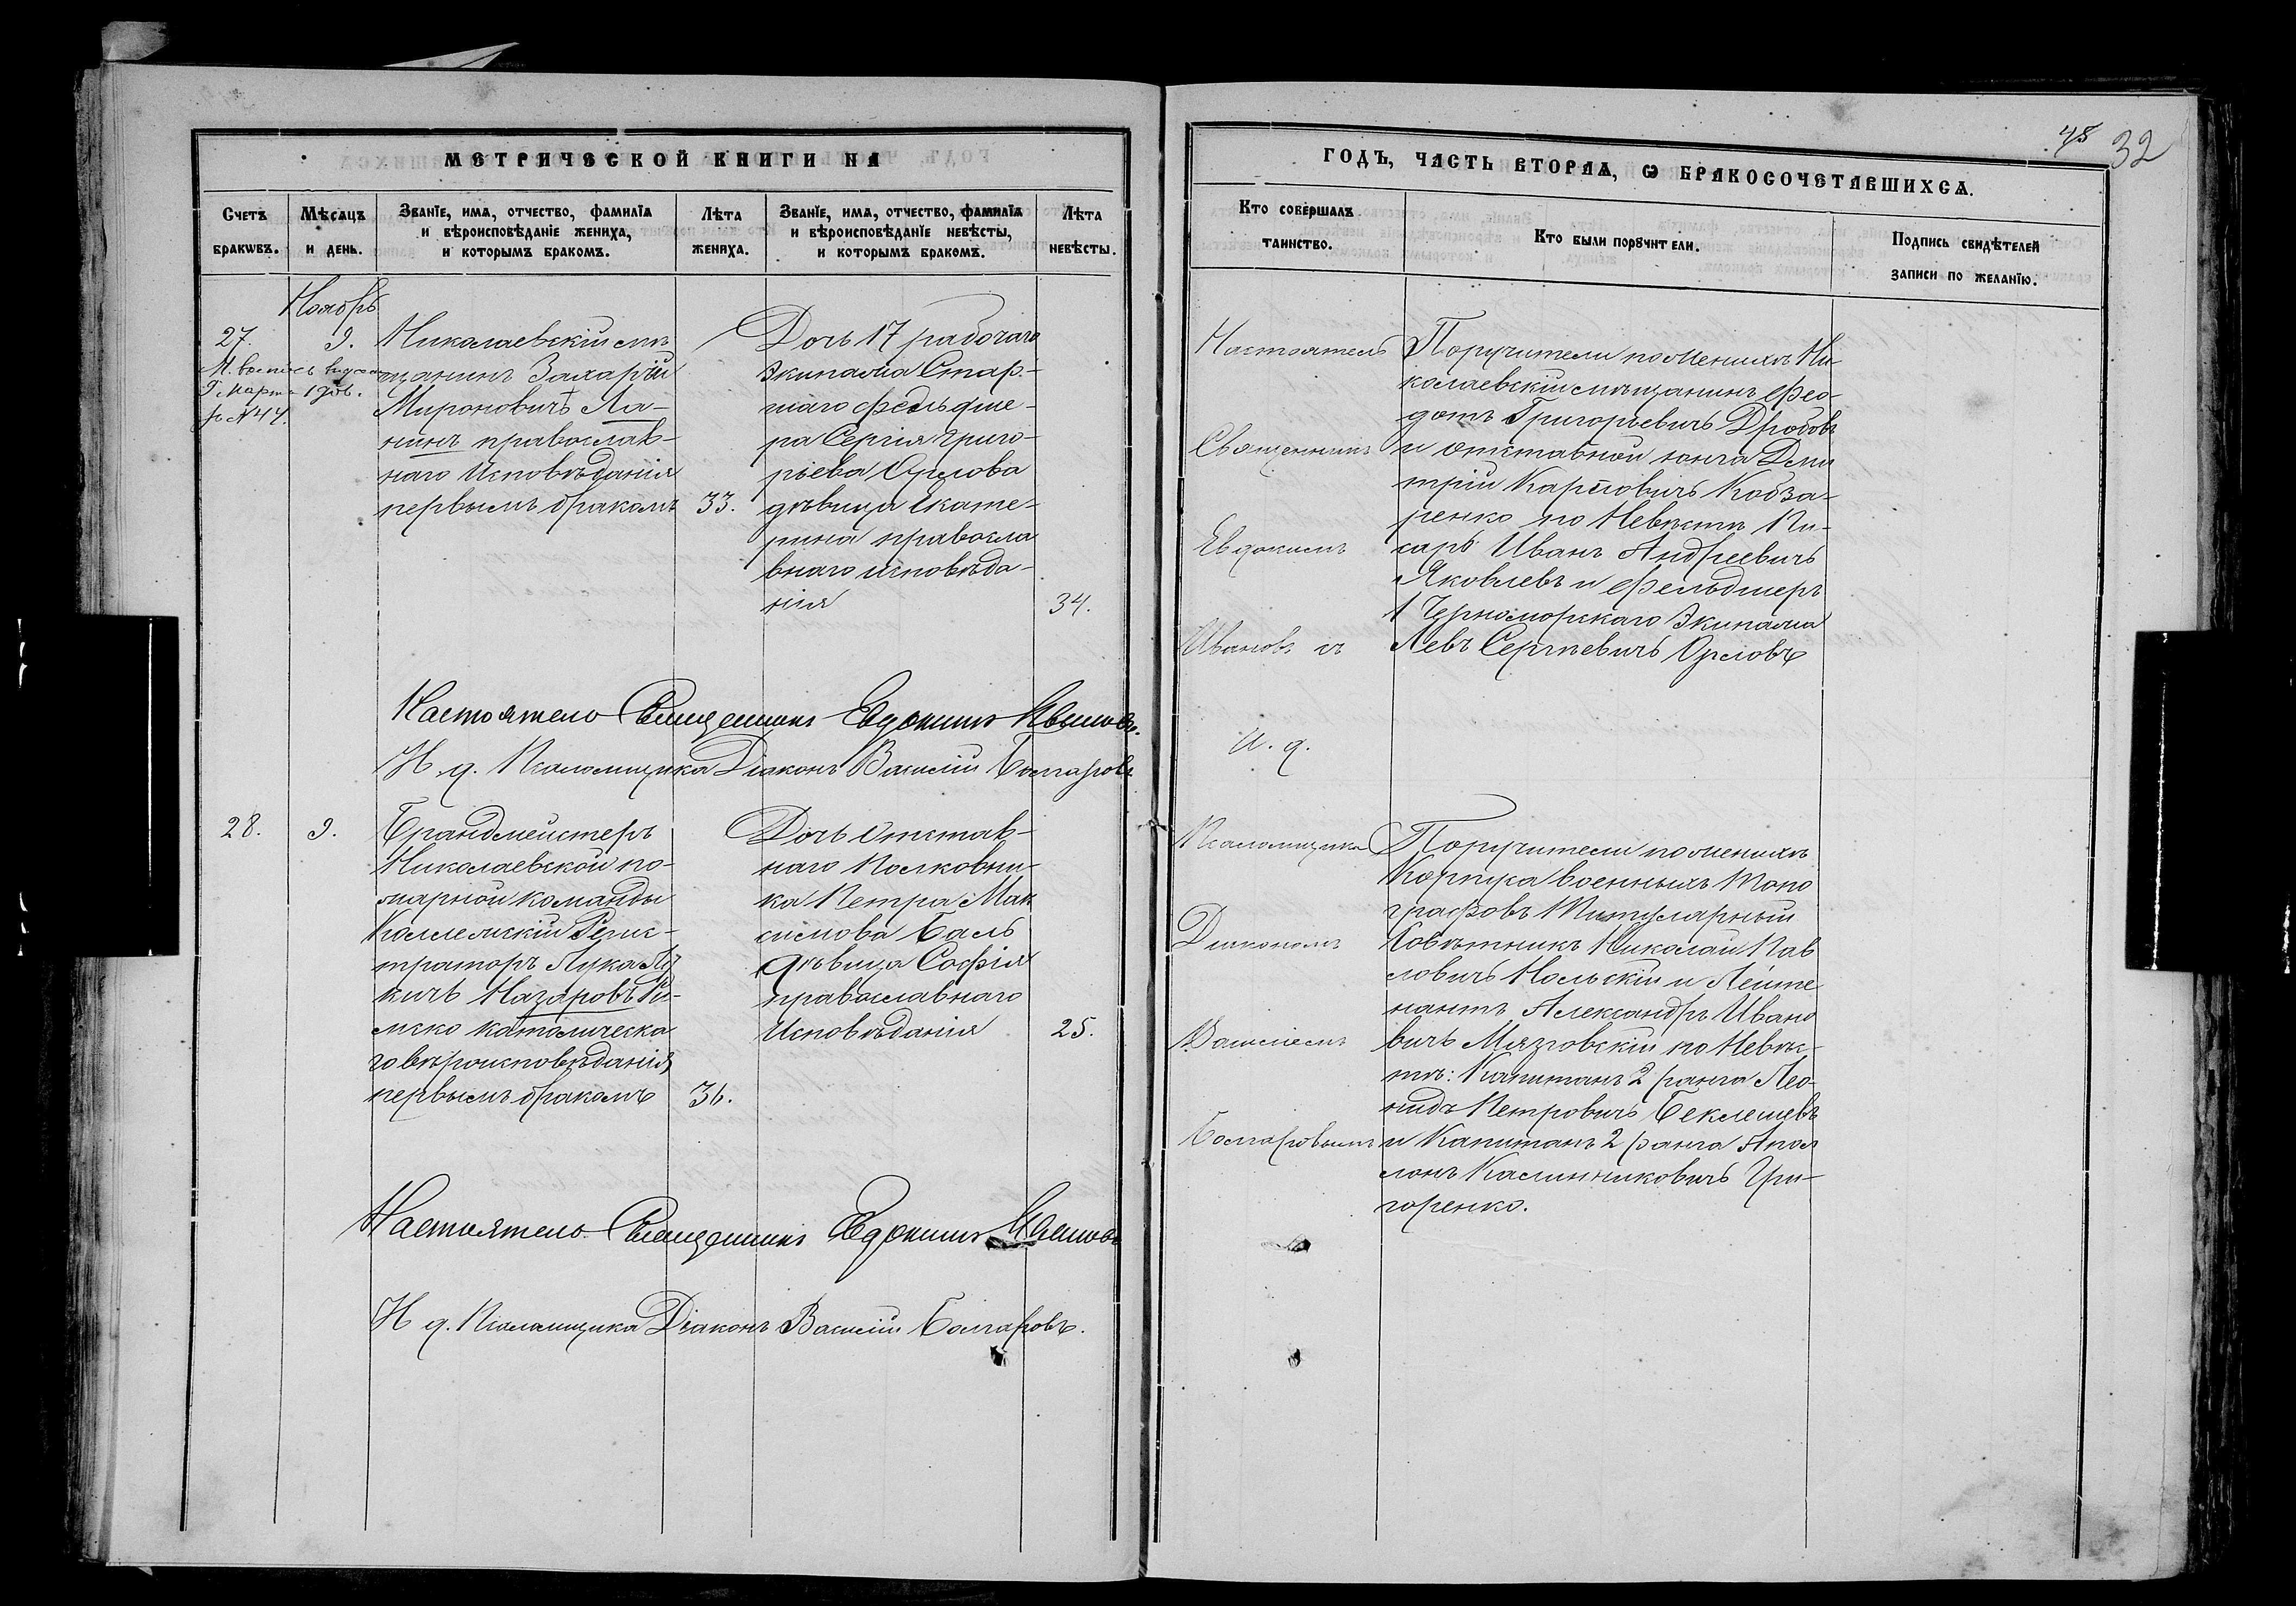 МЕТРИЧЕСКОЙ КНИГИ НА
Счетъ браковъ.
Мѣсяцъ и день.
Званіе, имя, отчество, фамилія и вѣроисповѣданіе жениха, и которымъ бракомъ.
Лѣта жениха.
Званіе, имя, отчество, фамилія и вѣроисповѣданіе невѣсты, и которымъ бракомъ.
Лѣта невѣсты.
Ноябрь
27.
9.
М. выпись выдана
марта
№ 44.
Николаевскій мѣ
щанинъ Захарій
Мироновичъ Ла-
нинъ православ-
наго Исповѣданія
первымъ бракомъ
33.
Дочь 17 рабочаго
Экипажа Стар-
шаго фельдше-
ра Сергія Григо-
рьева Орлова
дѣвица Екате-
рина правосла
внаго исповѣда-
нія
34.
Настоятель Священникъ Евдокимъ Ивановъ.
И. д. Псаломщика Діаконъ Василій Болгаровъ
28.
9.
Брандмейстеръ
Николаевской по-
жарной команды
Коллежскій Регис-
траторъ Лука Лу
кичъ Назаровъ Ри-
мско католическа
го вѣроисповѣданія,
первымъ бракомъ
36.
Дочь Отстав-
наго Полковни-
ка Петра Мак
симова Баль
дѣвица Софія
православнаго
Исповѣданія
25.
Настоятель Священникъ Евдокимъ Ивановъ
И д. Псаломщика Діаконъ Василій Болгаровъ.
48
32
ГОДЪ, ЧАСТЬ ВТОРАЯ, Ѡ БРАКОСОЧЕТАВШИХСЯ.
Кто совершалъ таинство.
Кто были поручители.
Подпись свидѣтелей записи по желанію.
Настоятель
Священникъ
Евдокимъ
Ивановъ съ
И. д.
Псаломщика
Діакономъ
Василіемъ
Болгаровымъ
Поручители по женихѣ Ни-
колаевскій мѣщанинъ Фео-
дотъ Григорьевичъ Дробовъ
и отставной юнга Дми
трій Карповичъ Кобза-
ренко по Невѣстѣ Пи-
сарь Иванъ Андреевичъ
Яковлевъ и Фельдшеръ
1 Черноморскаго Экипажа
Левъ Сергѣевичъ Орловъ
Поручители по женихѣ
Корпуса военныхъ Топо
графовъ Титулярный
Совѣтникъ Николай Пав
ловичъ Нольскій и Лейте
нантъ Александръ Ивано
вичъ Мязговскій по Невѣс-
тѣ: Капитанъ 2 ранга Лео-
нидъ Петровичъ Беклешевъ
и Капитанъ 2 ранга Апол
лонъ Каллиниковичъ Гри-
горенко.